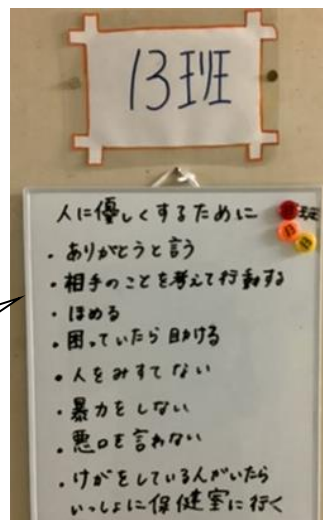 13班
人に優しくするために
・ありがとうと言う
・相手のことを考えて行動する
・ほめる
・困っていたら助ける
・人をみすてない
・暴力をしない
・悪口を言わない
・けがをしている人がいたら
いっしょに保健室に行く